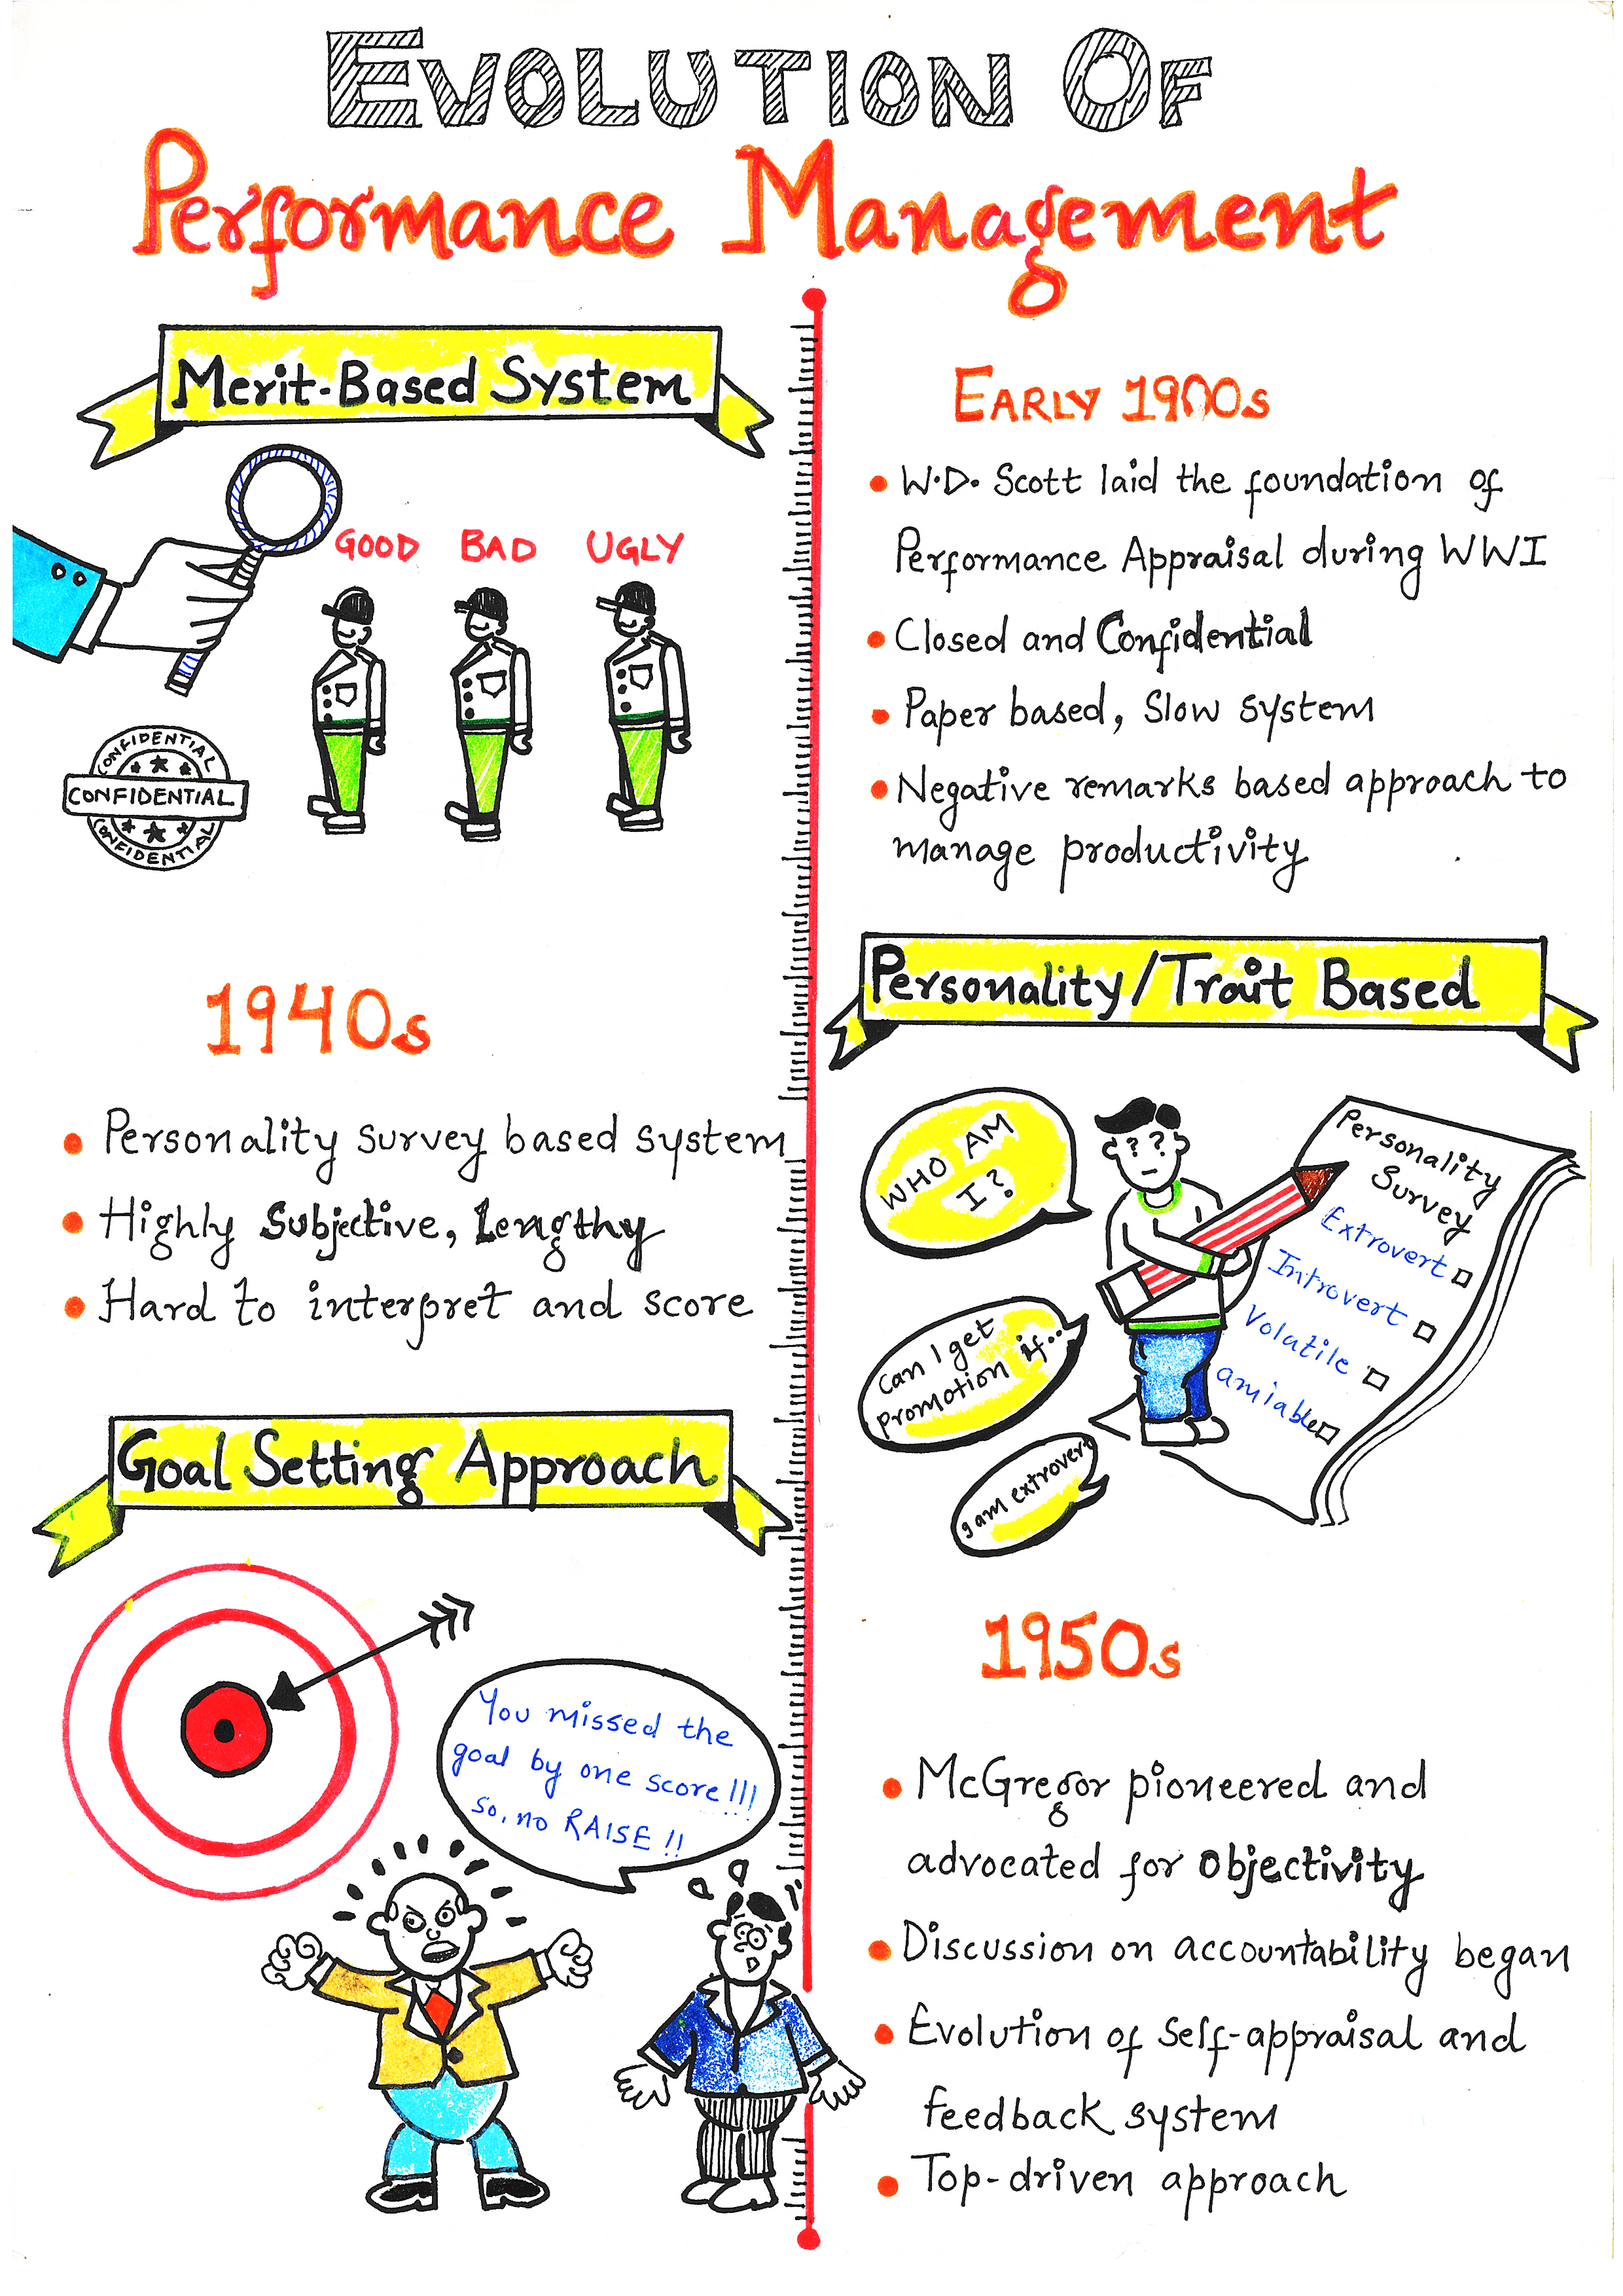 EVOLUTION OF
Performance Management
Merit-Based System
GOOD BAD UGLY
CONFIDENTIAL
CONFIDENTIAL
CONFIDENTIAL
EARLY 1900s
W.D. Scott laid the foundation of
Performance Appraisal during WWI
Closed and Confidential
Paper based, Slow system
Negative remarks based approach to
manage productivity
1940s
Personality survey based system
Highly Subjective, Lengthy
Hard to interpret and score
Personality/Trait Based
WHO AM
I?
? ?
Can I get
promotion if...
I am extrovert
Personality
Survey
Extrovert
Introvert
Volatile
amiable
Goal Setting Approach
You missed the
goal by one score!!!
so, no RAISE!!
1950s
McGregor pioneered and
advocated for Objectivity
Discussion on accountability began
Evolution of Self-appraisal and
feedback system
Top-driven approach